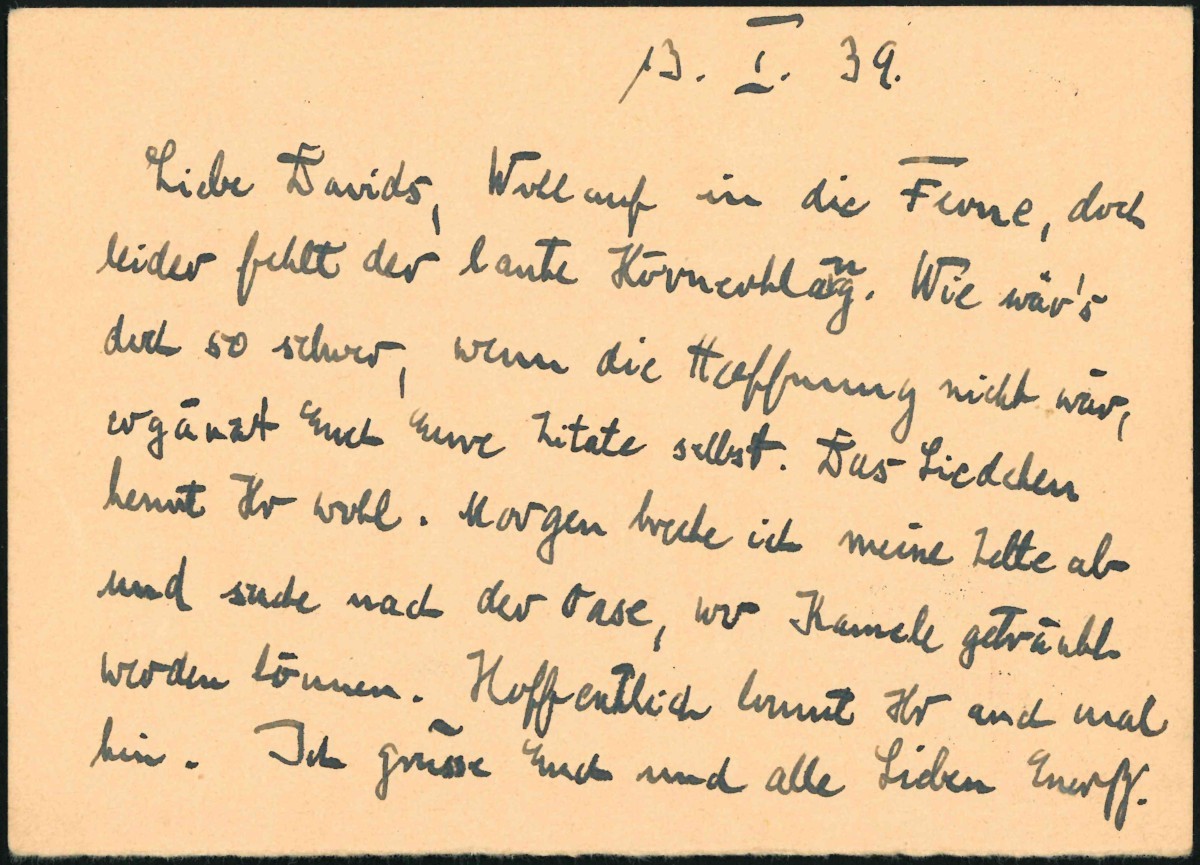 13. I. 39.
Liebe Davids, Wollauf in die Ferne, doch
leider fehlt der laute Hörnerklang. Wie wär's
doch so schwer, wenn die Hoffnung nicht wär,
ergänzt Euch Eure Zitate selbst. Das Liedchen
kennt Ihr wohl. Morgen breche ich meine Zelte ab
und suche nach der Oase, wo Kamele getränkt
werden können. Hoffentlich kommt Ihr auch mal
hin. Ich grüsse Euch und alle Lieben Euer